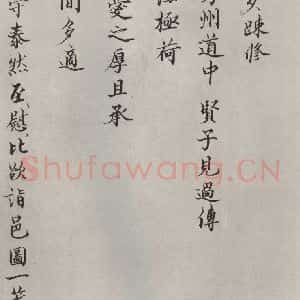 踈修
州道中賢子見過傳
極荷
愛之厚且承
間多適
泰然至慰比欲詣邑圖一
Shufawang.CN